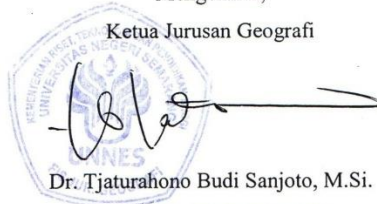 Ketua Jurusan Geografi
KEMENTERIAN RISET, TEKNOLOGI DAN PENDIDIKAN
UNIVERSITAS NEGERI SEMARANG
UNNES
Dr. Tjaturahono Budi Sanjoto, M.Si.